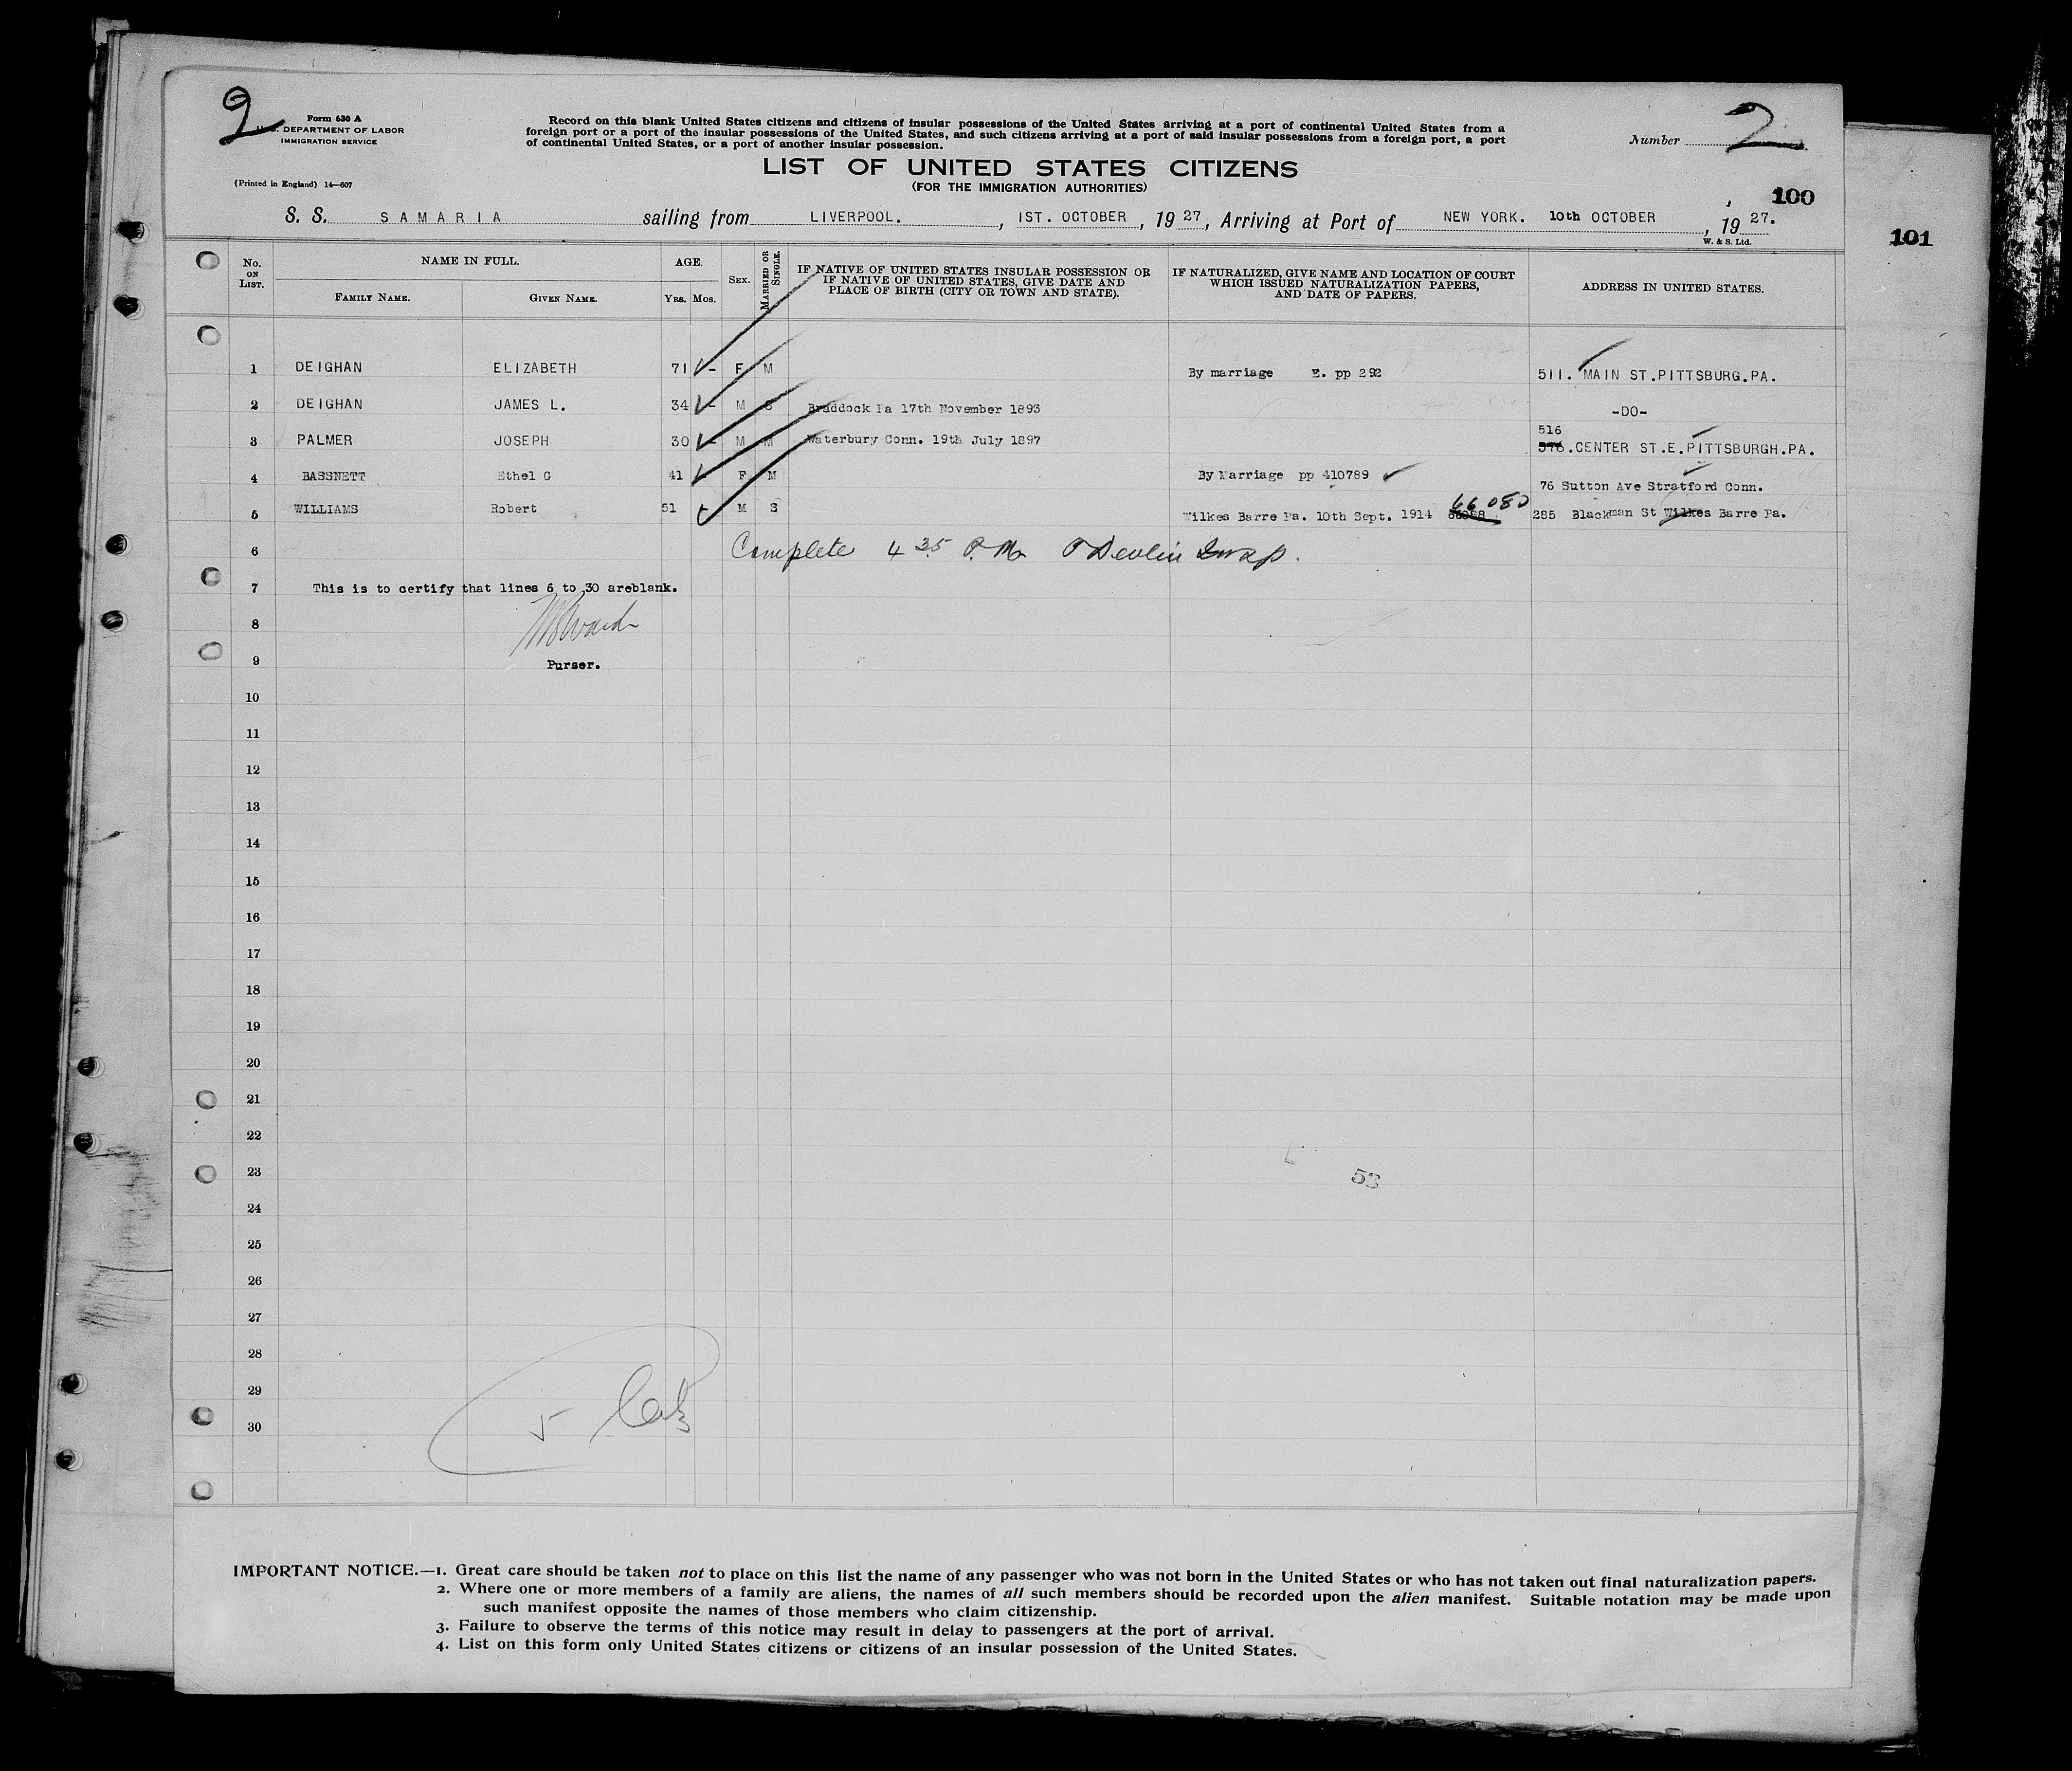 2
Form 630 A
U.S. DEPARTMENT OF LABOR
IMMIGRATION SERVICE
(Printed in England) 14—607
Record on this blank United States citizens and citizens of insular possessions of the United States arriving at a port of continental United States from a
foreign port or a port of the insular possessions of the United States, and such citizens arriving at a port of said insular possessions from a foreign port, a port
of continental United States, or a port of another insular possession.
Number 2
LIST OF UNITED STATES CITIZENS
(FOR THE IMMIGRATION AUTHORITIES)
100
101
S. S. SAMARIA sailing from LIVERPOOL. , 1ST. OCTOBER , 19 27, Arriving at Port of NEW YORK. 10th OCTOBER , 19 27.
W. & S. Ltd.
No. ON LIST. NAME IN FULL. AGE. SEX. MARRIED OR SINGLE. IF NATIVE OF UNITED STATES INSULAR POSSESSION OR IF NATIVE OF UNITED STATES, GIVE DATE AND PLACE OF BIRTH (CITY OR TOWN AND STATE). IF NATURALIZED, GIVE NAME AND LOCATION OF COURT WHICH ISSUED NATURALIZATION PAPERS, AND DATE OF PAPERS. ADDRESS IN UNITED STATES.
FAMILY NAME. GIVEN NAME. YRS. MOS.
1 DEIGHAN ELIZABETH 71 - F M By marriage E. pp 292 511. MAIN ST.PITTSBURG.PA.
2 DEIGHAN JAMES L. 34 - M S Braddock Pa 17th November 1893 -DO-
3 PALMER JOSEPH 30 - M M Waterbury Conn. 19th July 1897 516 .CENTER ST.E.PITTSBURGH.PA.
4 BASSNETT Ethel G 41 F M By Marriage pp 410789 76 Sutton Ave Stratford Conn.
5 WILLIAMS Robert 51 M S Wilkes Barre Pa. 10th Sept. 1914 66080 285 Blackman St Wilkes Barre Pa.
6 Complete 4 35 P.M. O Devlin Insp.
7 This is to certify that lines 6 to 30 areblank.
8
9 Purser.
10
11
12
13
14
15
16
17
18
19
20
21
22
23 53
24
25
26
27
28
29
30
5
IMPORTANT NOTICE.—1. Great care should be taken not to place on this list the name of any passenger who was not born in the United States or who has not taken out final naturalization papers.
2. Where one or more members of a family are aliens, the names of all such members should be recorded upon the alien manifest. Suitable notation may be made upon
such manifest opposite the names of those members who claim citizenship.
3. Failure to observe the terms of this notice may result in delay to passengers at the port of arrival.
4. List on this form only United States citizens or citizens of an insular possession of the United States.